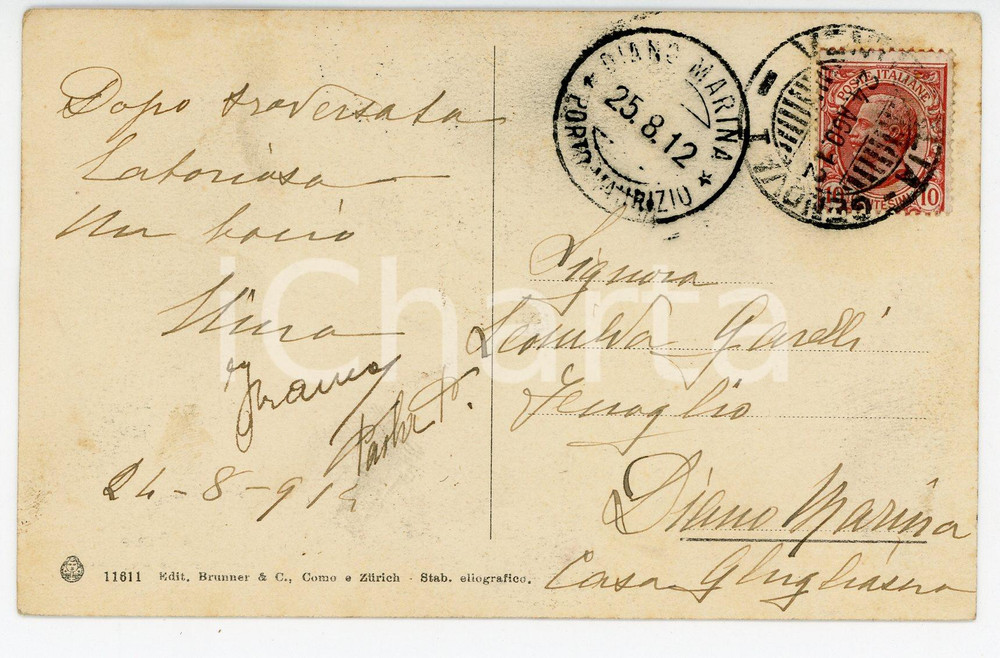 Dopo traversata
laboriosa
un bacio
24-8-912
11611 Edit. Brunner & C., Como e Zürich - Stab. eliografico.
DIANO MARINA
25.8.12
PORTO MAURIZIO
POSTE ITALIANE
10 CENTESIMI 10
Signora
Leonilda Garelli
Fenoglio
Diano Marina
Casa
iCharta